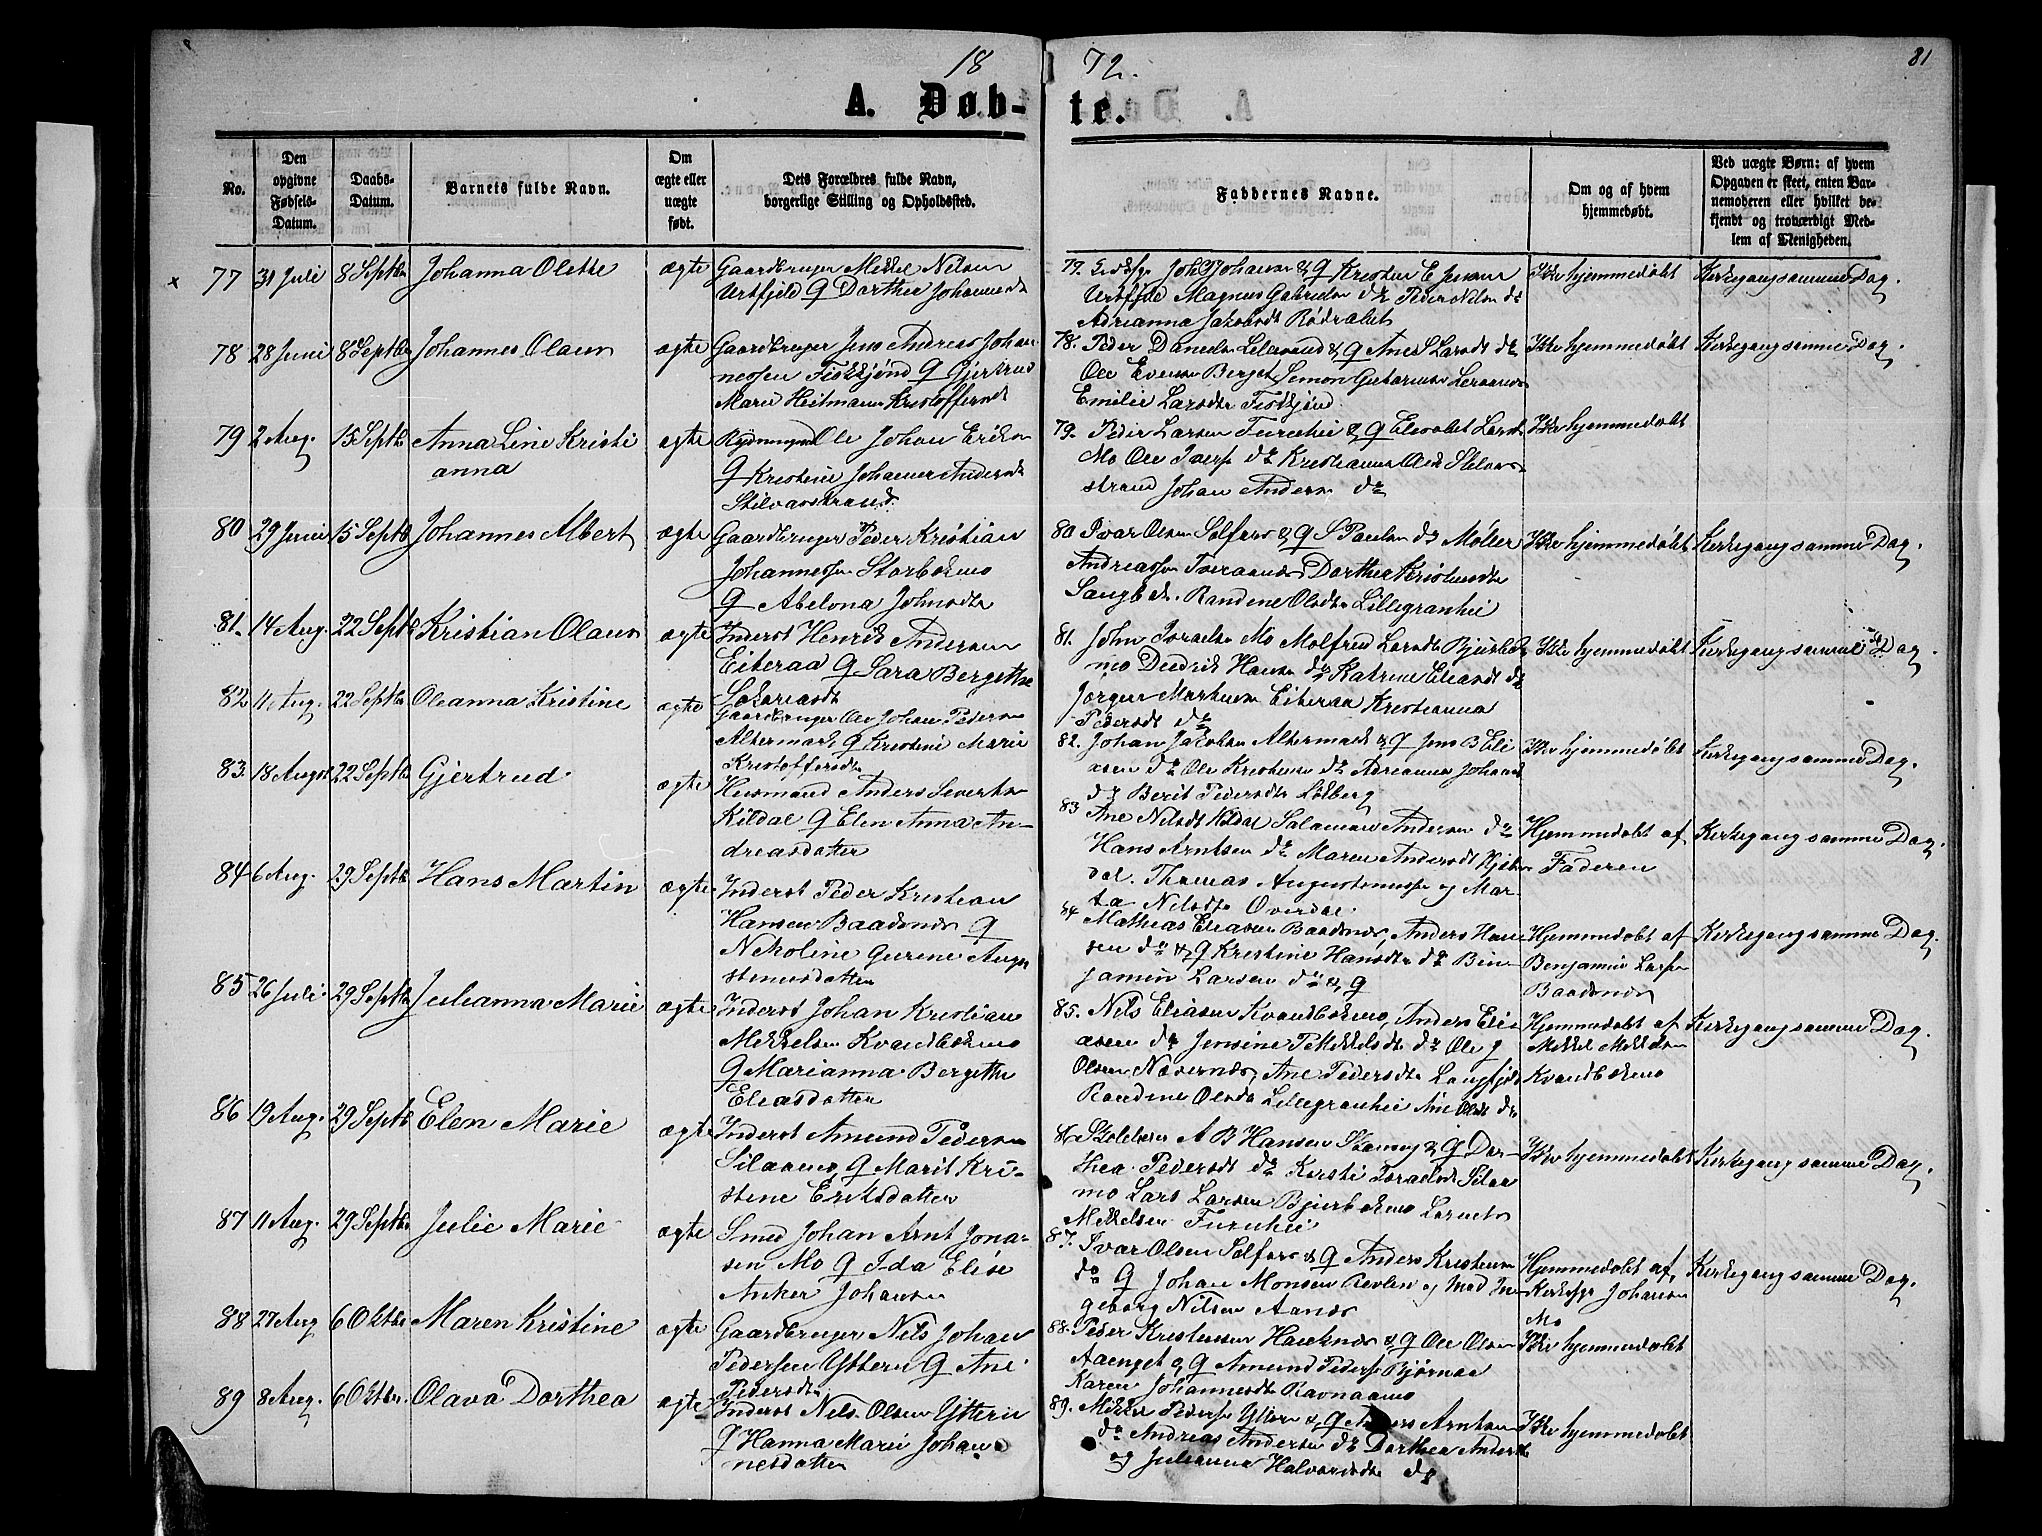 18 72.
81
A. Døb- te.
No.
Den opgivne Fødsels-Datum.
Daabs-Datum.
Barnets fulde Navn.
Om ægte eller uægte født.
Dets Forældres fulde Navn, borgerlige Stilling og Opholdssted.
Faddernes Navne.
Om og af hvem hjemmedøbt.
Ved uægte Børn: af hvem Opgaven er skeet, enten Barnemoderen eller hvilket bekjendt og troværdigt Medlem af Menigheden.
77 31 Juli 8 Septbr Johanna Olette ægte Gaardbruger Mikkel Nilsen
Urtfjeld Q Dorthea Johannesdt
Ikke hjemmedøbt Kirkegang samme Dag.
Adrianna Jakobsdt Rødvalet
78 28 Juni 8 Septbr Johannes Olaus ægte Gaardbruger Jens Andreas Johan
nessen Fiskkjønd Q Gjertrud
Marie Heitmann Kristoffersdt
78. Peder Danielsen & Q Ane S Larsdt do
Ole Evensen Berget Simon
Emilie Larsdtr Fiskkjønd
Ikke hjemmedøbt Kirkegang samme Dag.
79 2 Aug. 15 Septbr Anna Line Kristi
anna
ægte Rydningsmd Ole Johan Eriksen
Q Kristine Johanna Andersdt
Stilvasstrand.
79. Peder Larsen Furuhei & Q Elisabet Larsdt
Mo Ole Iversen do Kristianna Olsdt Stilvas
strand Johan Andersen do
Ikke hjemmedøbt
80 29 Juni 15 Septbr Johannes Albert ægte Gaardbruger Peder Kristian
Johannessen Storbækmo
Q Abelona Johnsdtr
80 Ivar Olsen Selfors & Q S Paulsen do Møller
Andreassen Tveraanes Dorthea Kristensdtr
Langbæk. Randine Olsdtr Lillegranhei
Ikke hjemmedøbt Kirkegang samme Dag.
81. 14 Aug. 22 Septbr Kristian Olaus ægte Inderst Henrik Andersen
Eiteraa Q Sara Bergitte
Sakariasdt
81. John Israelsen Mo Molfrid Larsdtr Bjurbæk
mo Diedrik Hansen do Katrine Eliasdt do
Jørgen Martinsen Eiteraa Kristianna
Pedersdt do
Ikke hjemmedøbt Kirkegang samme Dag.
82 11 Aug. 22 Septbr Oleanna Kristine ægte Gaardbruger Ole Johan Pedersen
Altermark Q Kristine Marie
Kristoffersdtr
82. Johan Jakobsen Altermark & Q Jens B Eli
asen do Ole Kristensen do Adrianna Johansdt
do Berit Pedersdtr Solberg
Ikke hjemmedøbt Kirkegang samme Dag.
83. 18 August 22 Septbr Gjertrud ægte Husmand Anders Sivertsen
Kildal Q Elen Anna An-
dreasdatter
83 Ane Nilsdt Kildal Salamon Andersen do
Hans Arntsen do Maren Andersdt
dal. Thomas Augustinussen og Mar-
ta Nilsdtr Overdal.
Hjemmedøbt af
Faderen
Kirkegang samme Dag.
84 6 Aug. 29 Septbr Hans Martin ægte Inderst Peder Kristian
Hansen Baadsnes Q
Nikoline Gurine Augu
stinusdatter
84 Mathias Eliasen Baadsnes, Anders Han
sen do & Q Kristine Hansdtr do Ben
jamin Larsen do & Q
Hjemmedøbt af
Benjamin Larsen
Baadsnes
Kirkegang samme Dag.
85 26 Juli. 29 Septbr Julianna Marie ægte Inderst Johan Kristian
Mikkelsen Kvandbækmo
Q Marianna Bergitte
Eliasdatter
85. Nils Eliasen Kvandbækmo, Anders Eli
asen do Jensine P Mikkelsdtr do Ole J
Olsen Næverness, Ane Pedersdtr Langfjeld
Randine Olsdtr Lillegranhei Ane Olsdt do
Hjemmedøbt af
Mikkel Mikkelsen
Kvandbækmo
Kirkegang samme Dag.
86 19 Aug. 29 Septbr Elen Marie ægte Inderst Amund Pedersen
Silaamo, Q Marit Kri-
stine Eriksdatter
86. A B Hansen & Q Dor-
thea Pedersdt do Kirsti Israelsdt Silaa
mo Lars Larsen Bjurbækmo
Mikkelsen Furuhei
Ikke hjemmedøbt Kirkegang samme Dag.
87 11 Aug. 29 Septbr Julie Marie ægte Smed Johan Arnt Jona-
sen Mo Q Ida Elise
Anker Johansen
87. Ivar Olsen Selfors & Q Anders Kristensen
do Q Johan Monsen Revlen og Mad In
geborg Nilsen Aanes
Hjemmedøbt af,
Kirkesgr Johansen
Mo
Kirkegang samme Dag.
88 27 Aug 6 Oktbr Maren Kristine ægte Gaardbruger Nils Johan
Pedersen Ytteren Q Ane
Pedersdtr
88. Peder Kristensen Hauknes & Q Ole Olsen
Aaenget & Q Amund Pedersen Bjørnaa
Karen Johannesdtr Ravnaamo
Ikke hjemmedøbt
89 8 Aug. 6 Oktbr. Olava Dorthea ægte Inderst Nils Olsen Ytteren
Q Hanna Marie Johan
nesdatter
89. Mikkel Pedersen Ytteren & Q Anders Arntsen
do Andreas Andersen do Dorthea Andersdtr
og Julianna Halvorsdtr do
Ikke hjemmedøbt